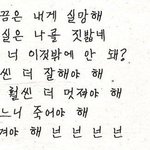 끔은 내게 실망해
실은 나를 짓밟네
너 이것밖에 안 돼?
씬 더 잘해야 해
훨씬 더 멋져야 해
느니 죽어야 해
겨야 해 넌 넌 넌 넌